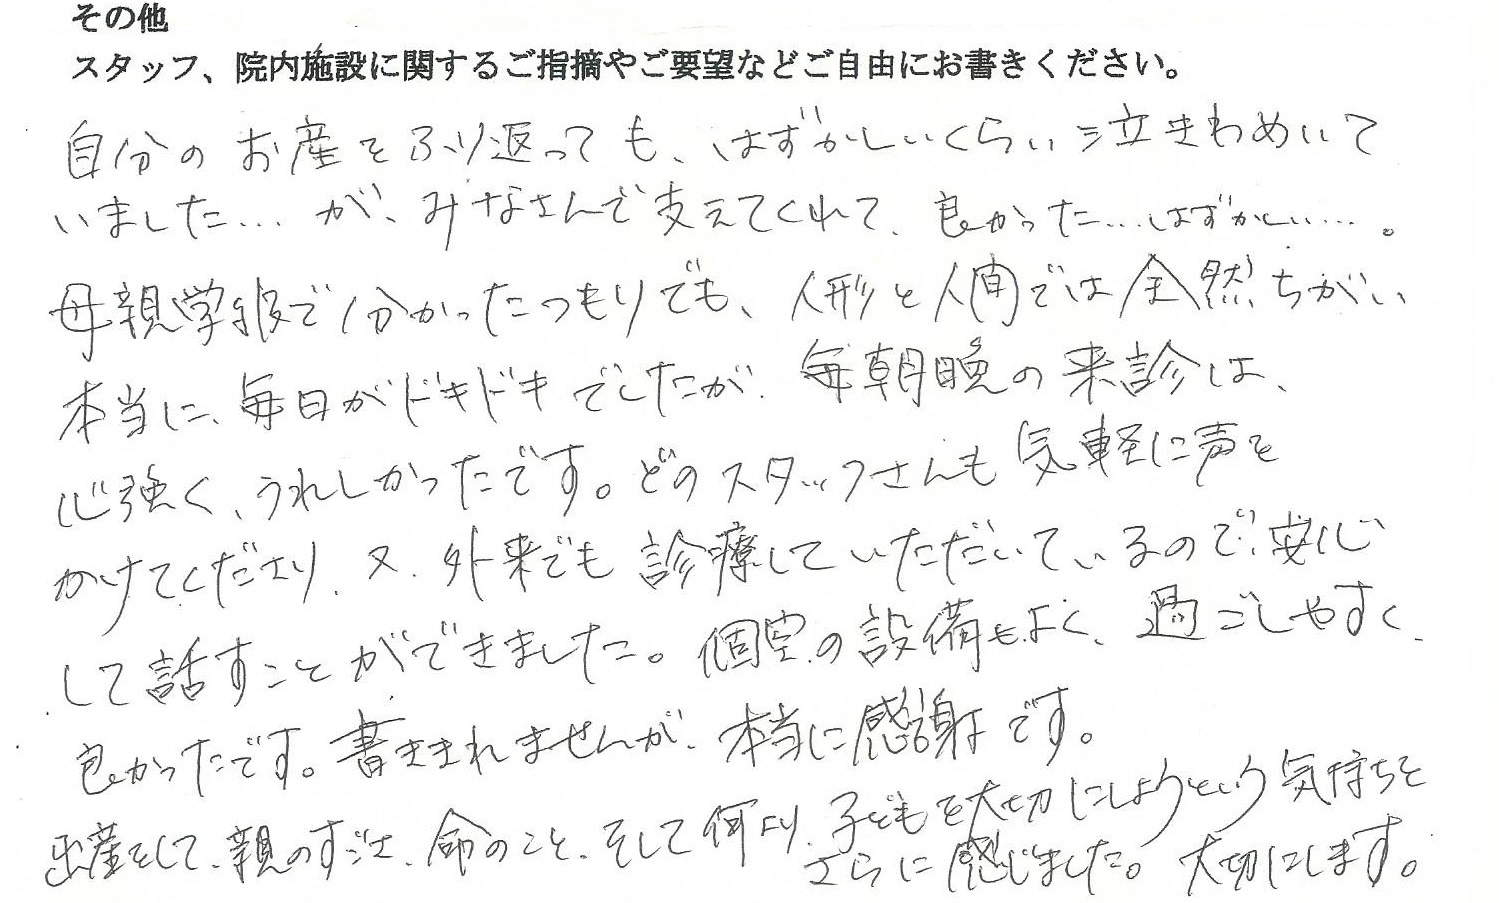 その他
スタッフ、院内施設に関するご指摘やご要望などご自由にお書きください。
自分のお産をふり返っても、はずかしいくらい泣きわめいて
いました…が、みなさんで支えてくれて、良かった…はずかしい…。
母親学級で分かったつもりでも、人形と人間では全然ちがい
本当に、毎日がドキドキでしたが、毎朝晩の来診は、
心強く、うれしかったです。どのスタッフさんも気軽に声を
かけてくださり、又、外来でも診療していただいているので、安心
して話すことができました。個室の設備もよく、過ごしやすく、
良かったです。書ききれませんが、本当に感謝です。
出産をして、親のすごさ、命のこと、そして何より、子どもを大切にしようという気持ちを
さらに感じました。大切にします。